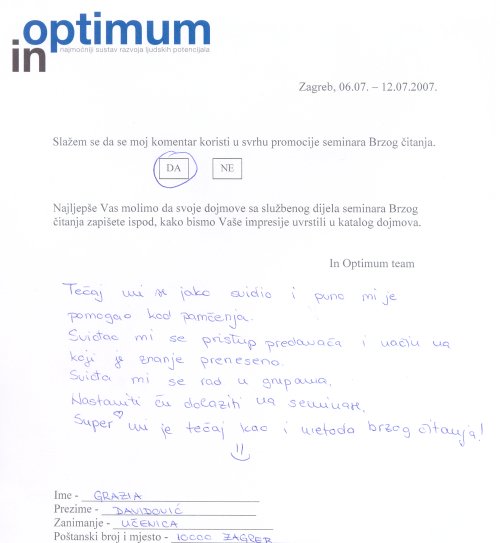 in optimum
najmoćniji sustav razvoja ljudskih potencijala
Zagreb, 06.07. – 12.07.2007.
Slažem se da se moj komentar koristi u svrhu promocije seminara Brzog čitanja.
DA NE
Najljepše Vas molimo da svoje dojmove sa službenog dijela seminara Brzog
čitanja zapišete ispod, kako bismo Vaše impresije uvrstili u katalog dojmova.
In Optimum team
Tečaj mi se jako svidio i puno mi je
pomogao kod pamćenja.
Sviđao mi se pristup predavača i način na
koji je znanje preneseno.
Sviđa mi se rad u grupama.
Nastaviti ću dolaziti na seminare.
Super mi je tečaj kao i metoda brzog čitanja!
Ime - GRAZIA
Prezime - DAVIDOVIĆ
Zanimanje - UČENICA
Poštanski broj i mjesto - 10000 ZAGREB